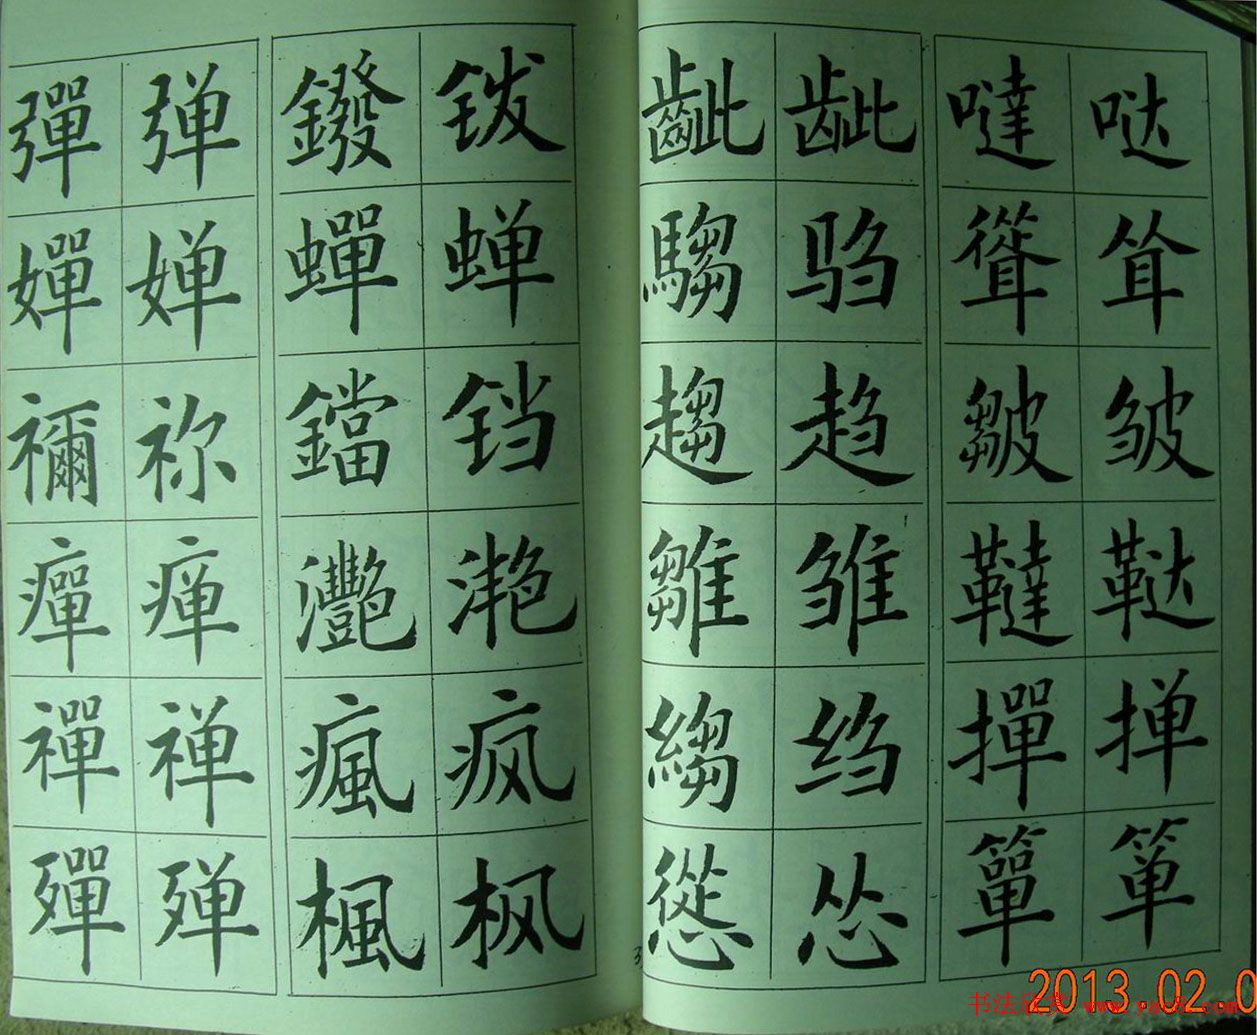 彈 弹 鏺 䥽
嬋 婵 蟬 蝉
禰 祢 鐺 铛
癉 瘅 灧 滟
禪 禅 瘋 疯
殫 殚 楓 枫
齜 龇 噠 哒
騶 驺 聳 耸
趨 趋 皺 皱
雛 雏 韃 鞑
縐 绉 撣 掸
慫 怂 簞 箪
2013.02.0
书法欣赏 www.yac8.com